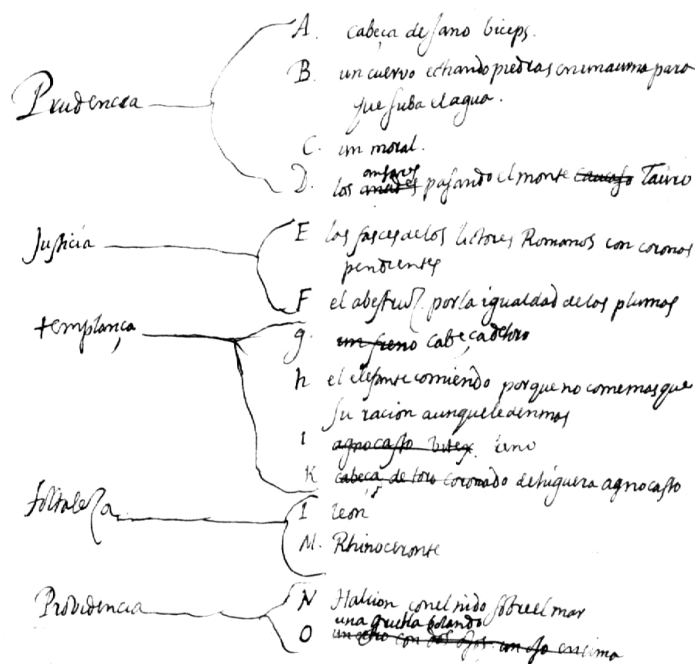 Prudencia
A. cabeça de Jano biceps.
B. un cuervo echando piedras en una urna para
que suba el agua.
C. un moral.
D. los anades ansares pasando el monte caucaso Tauro
Justicia
E las fasces de los lictores Romanos con coronas
pendientes
F el abestruz por la igualdad de las plumas
templança
g. un freno cabeça de toro
h el elefante comiendo porque no come mas que
su racion aunque le den mas
I agnocasto vitex.
K cabeça de toro coronado de higuera agnocasto
fortaleza
l leon
M. Rhinoceronte
Providencia
N Halcion con el nido sobre el mar
una grulla bolando
O un con dos ojos un ojo encima